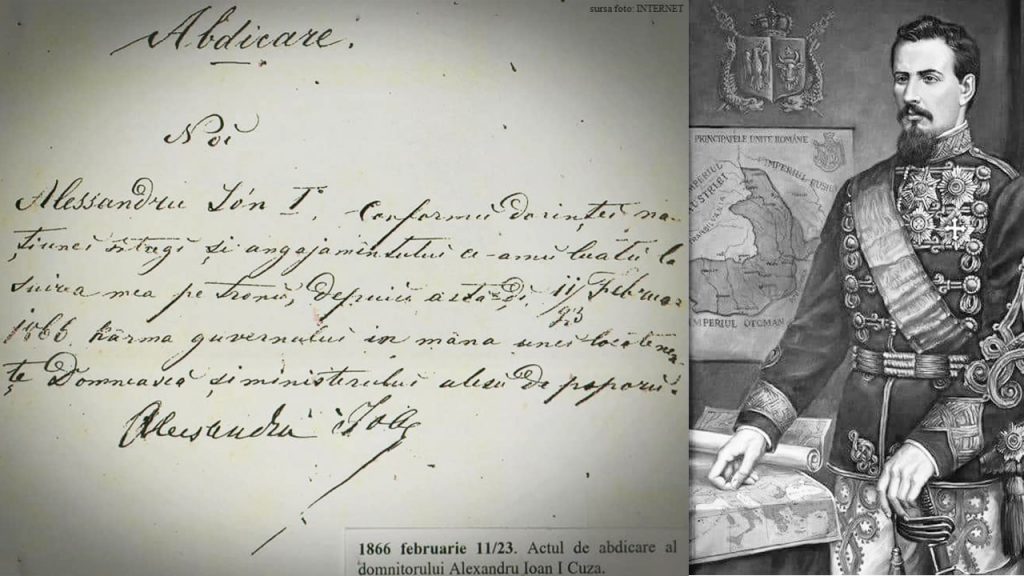 sursa foto: INTERNET
Abdicare.
Noi
Alessandru Ión I. Conformŭ dorinței na-
țiunei întregi și angajamentului ce-amŭ luatŭ la
suirea mea pe tronŭ, depuiŭ astăḑi, 11/23 Februar
1866 kârma guvernului in mâna unei locotenen-
țe Domnească și ministerului alesŭ de poporŭ.
Alessandru Ioan
PRINCIPATELE UNITE ROMÂNE
IMPERIUL AUSTRIEI
IMPERIUL RUSIEI
IMPERIUL OTOMAN
1866 februarie 11/23. Actul de abdicare al
domnitorului Alexandru Ioan I Cuza.